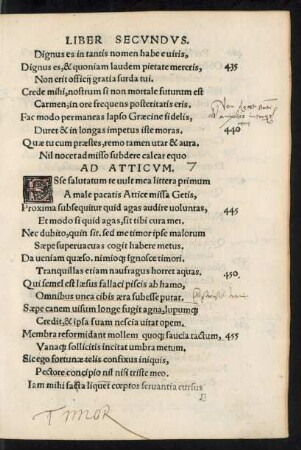 LIBER SECVNDVS.
Dignus es in tantis nomen habe e uiris,
Dignus es, & quoniam laudem pietate mereris, 435
Non erit officij gratia surda tui.
Crede mihi, nostrum si non mortale futurum est
Carmen, in ore frequens posteritatis eris.
Fac modo permaneas lapso Græcine si delis,
Duret & in longas impetus iste moras. 440
Quæ tu cum præstes, remo tamen utar & aura.
Nil nocet admisso subdere calcar equo
AD ATTICVM. 7
ESse salutatum te uult mea littera primum
A male pacatis Attice missa Getis,
Proxima subsequitur quid agas audire uoluntas, 445
Et modo si quid agas, sit tibi cura mei.
Nec dubito, quin sit. sed me timor ipse malorum
Sæpe superuacuas cogit habere metus.
Da ueniam quæso. nimioq; ignosce timori.
Tranquillas etiam naufragus horret aquas. 450.
Qui semel est læsus fallaci piscis ab hamo,
Omnibus unca cibis æra subesse putat.
Sæpe canem uisum longe fugit agna, lupumq;
Credit, & ipsa suam nescia uitat opem.
Membra reformidant mollem quoq; saucia tactum, 455
Vanaq; sollicitis incitat umbra metum.
Sic ego fortunæ telis confixus iniquis,
Pectore concipio nil nisi triste meo.
Iam mihi facta liquet cœptos seruantia cursus
TimoR